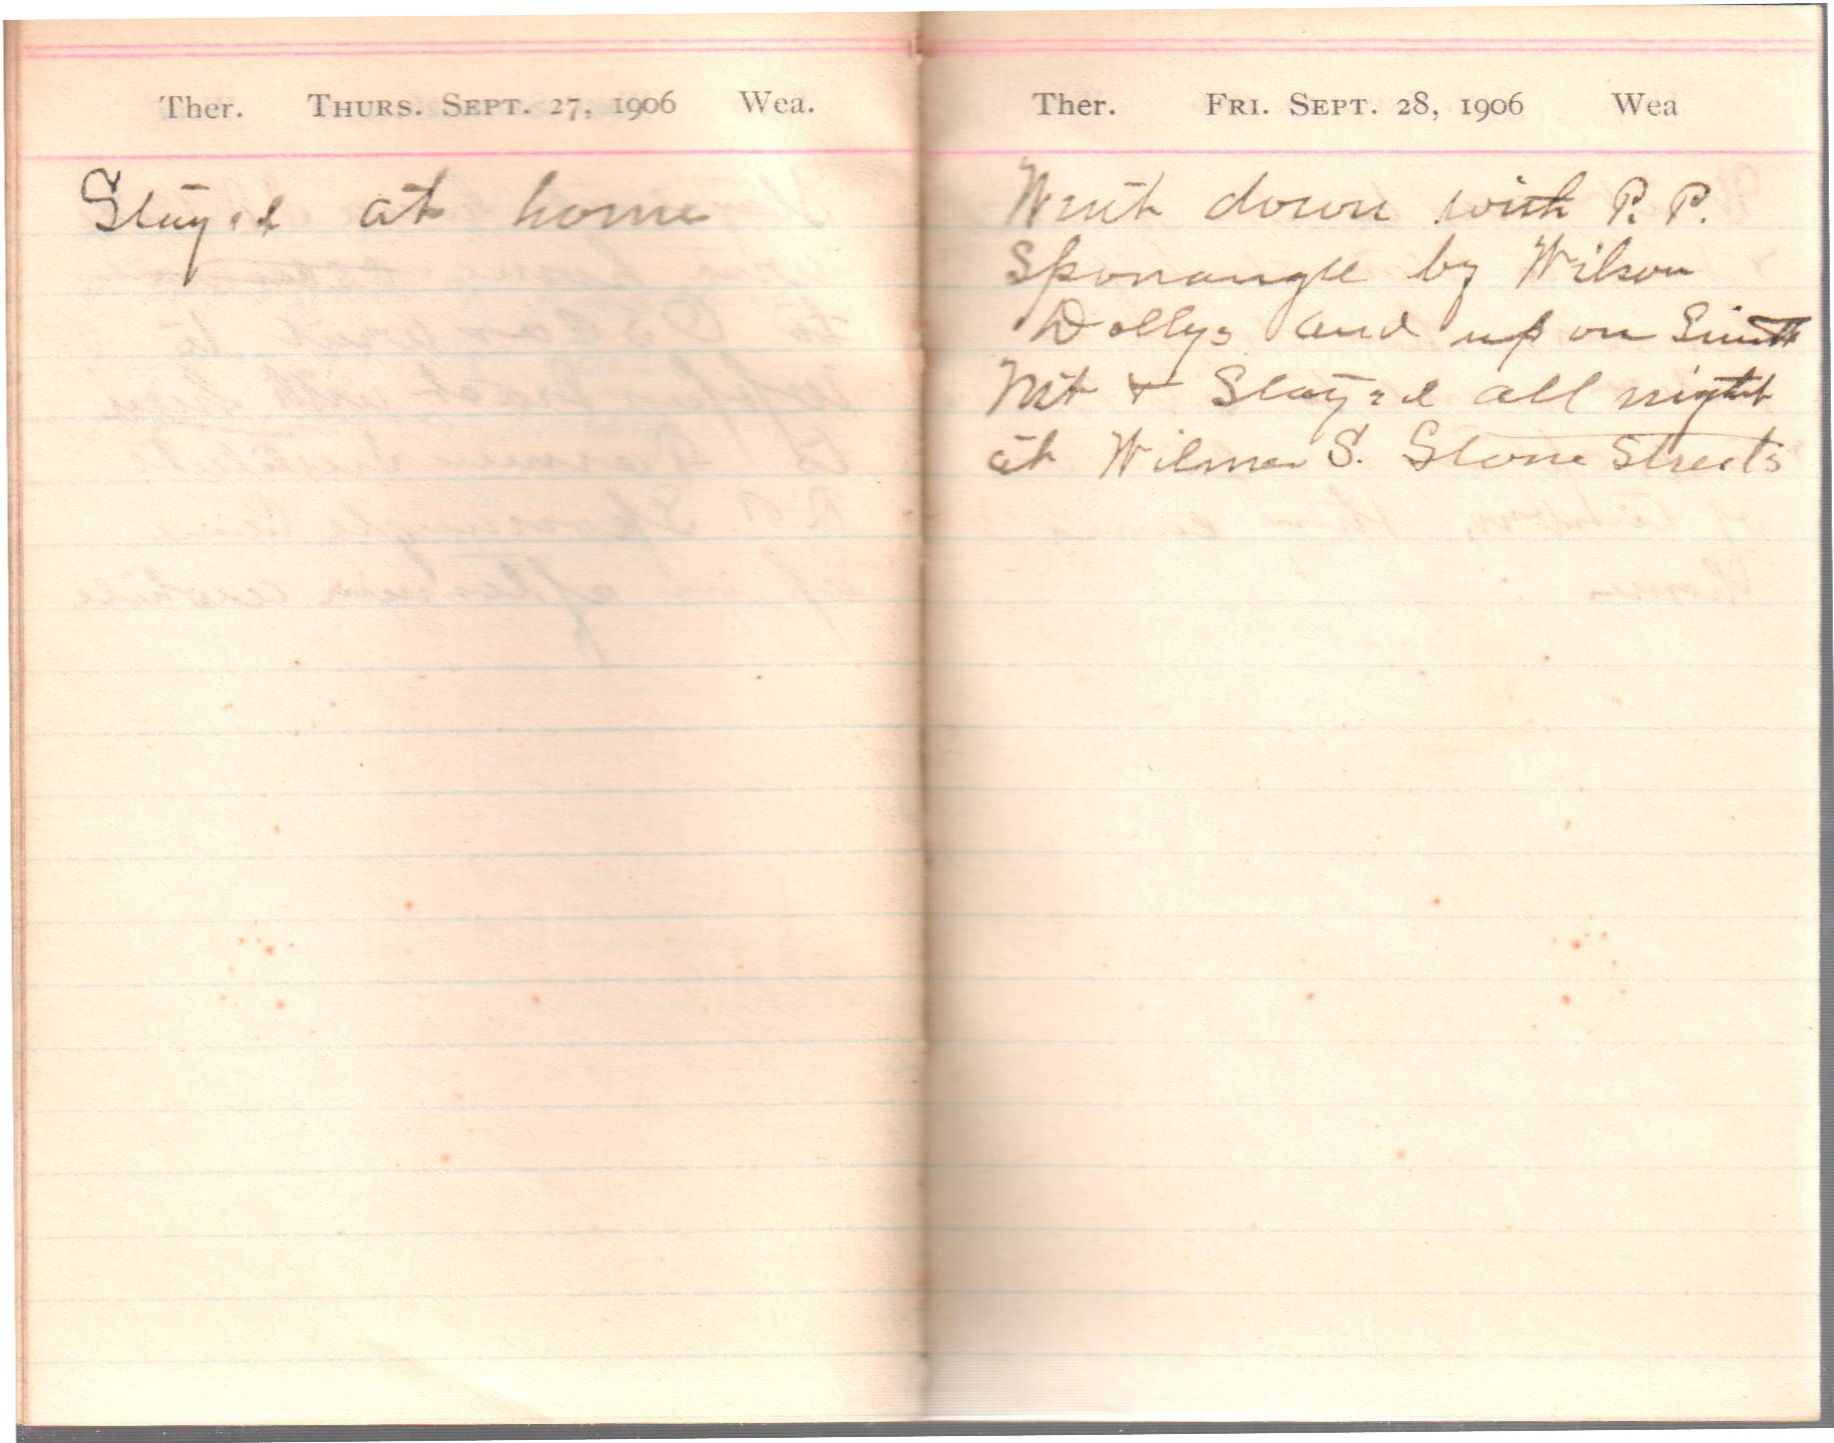 Ther. THURS. SEPT. 27, 1906 Wea.
Stayed at home
Ther. FRI. SEPT. 28, 1906 Wea
Went down with P. P.
Sponaugle by Wilson
Dollys and up on
Mt + Stayed all night
at S. Stone Streets